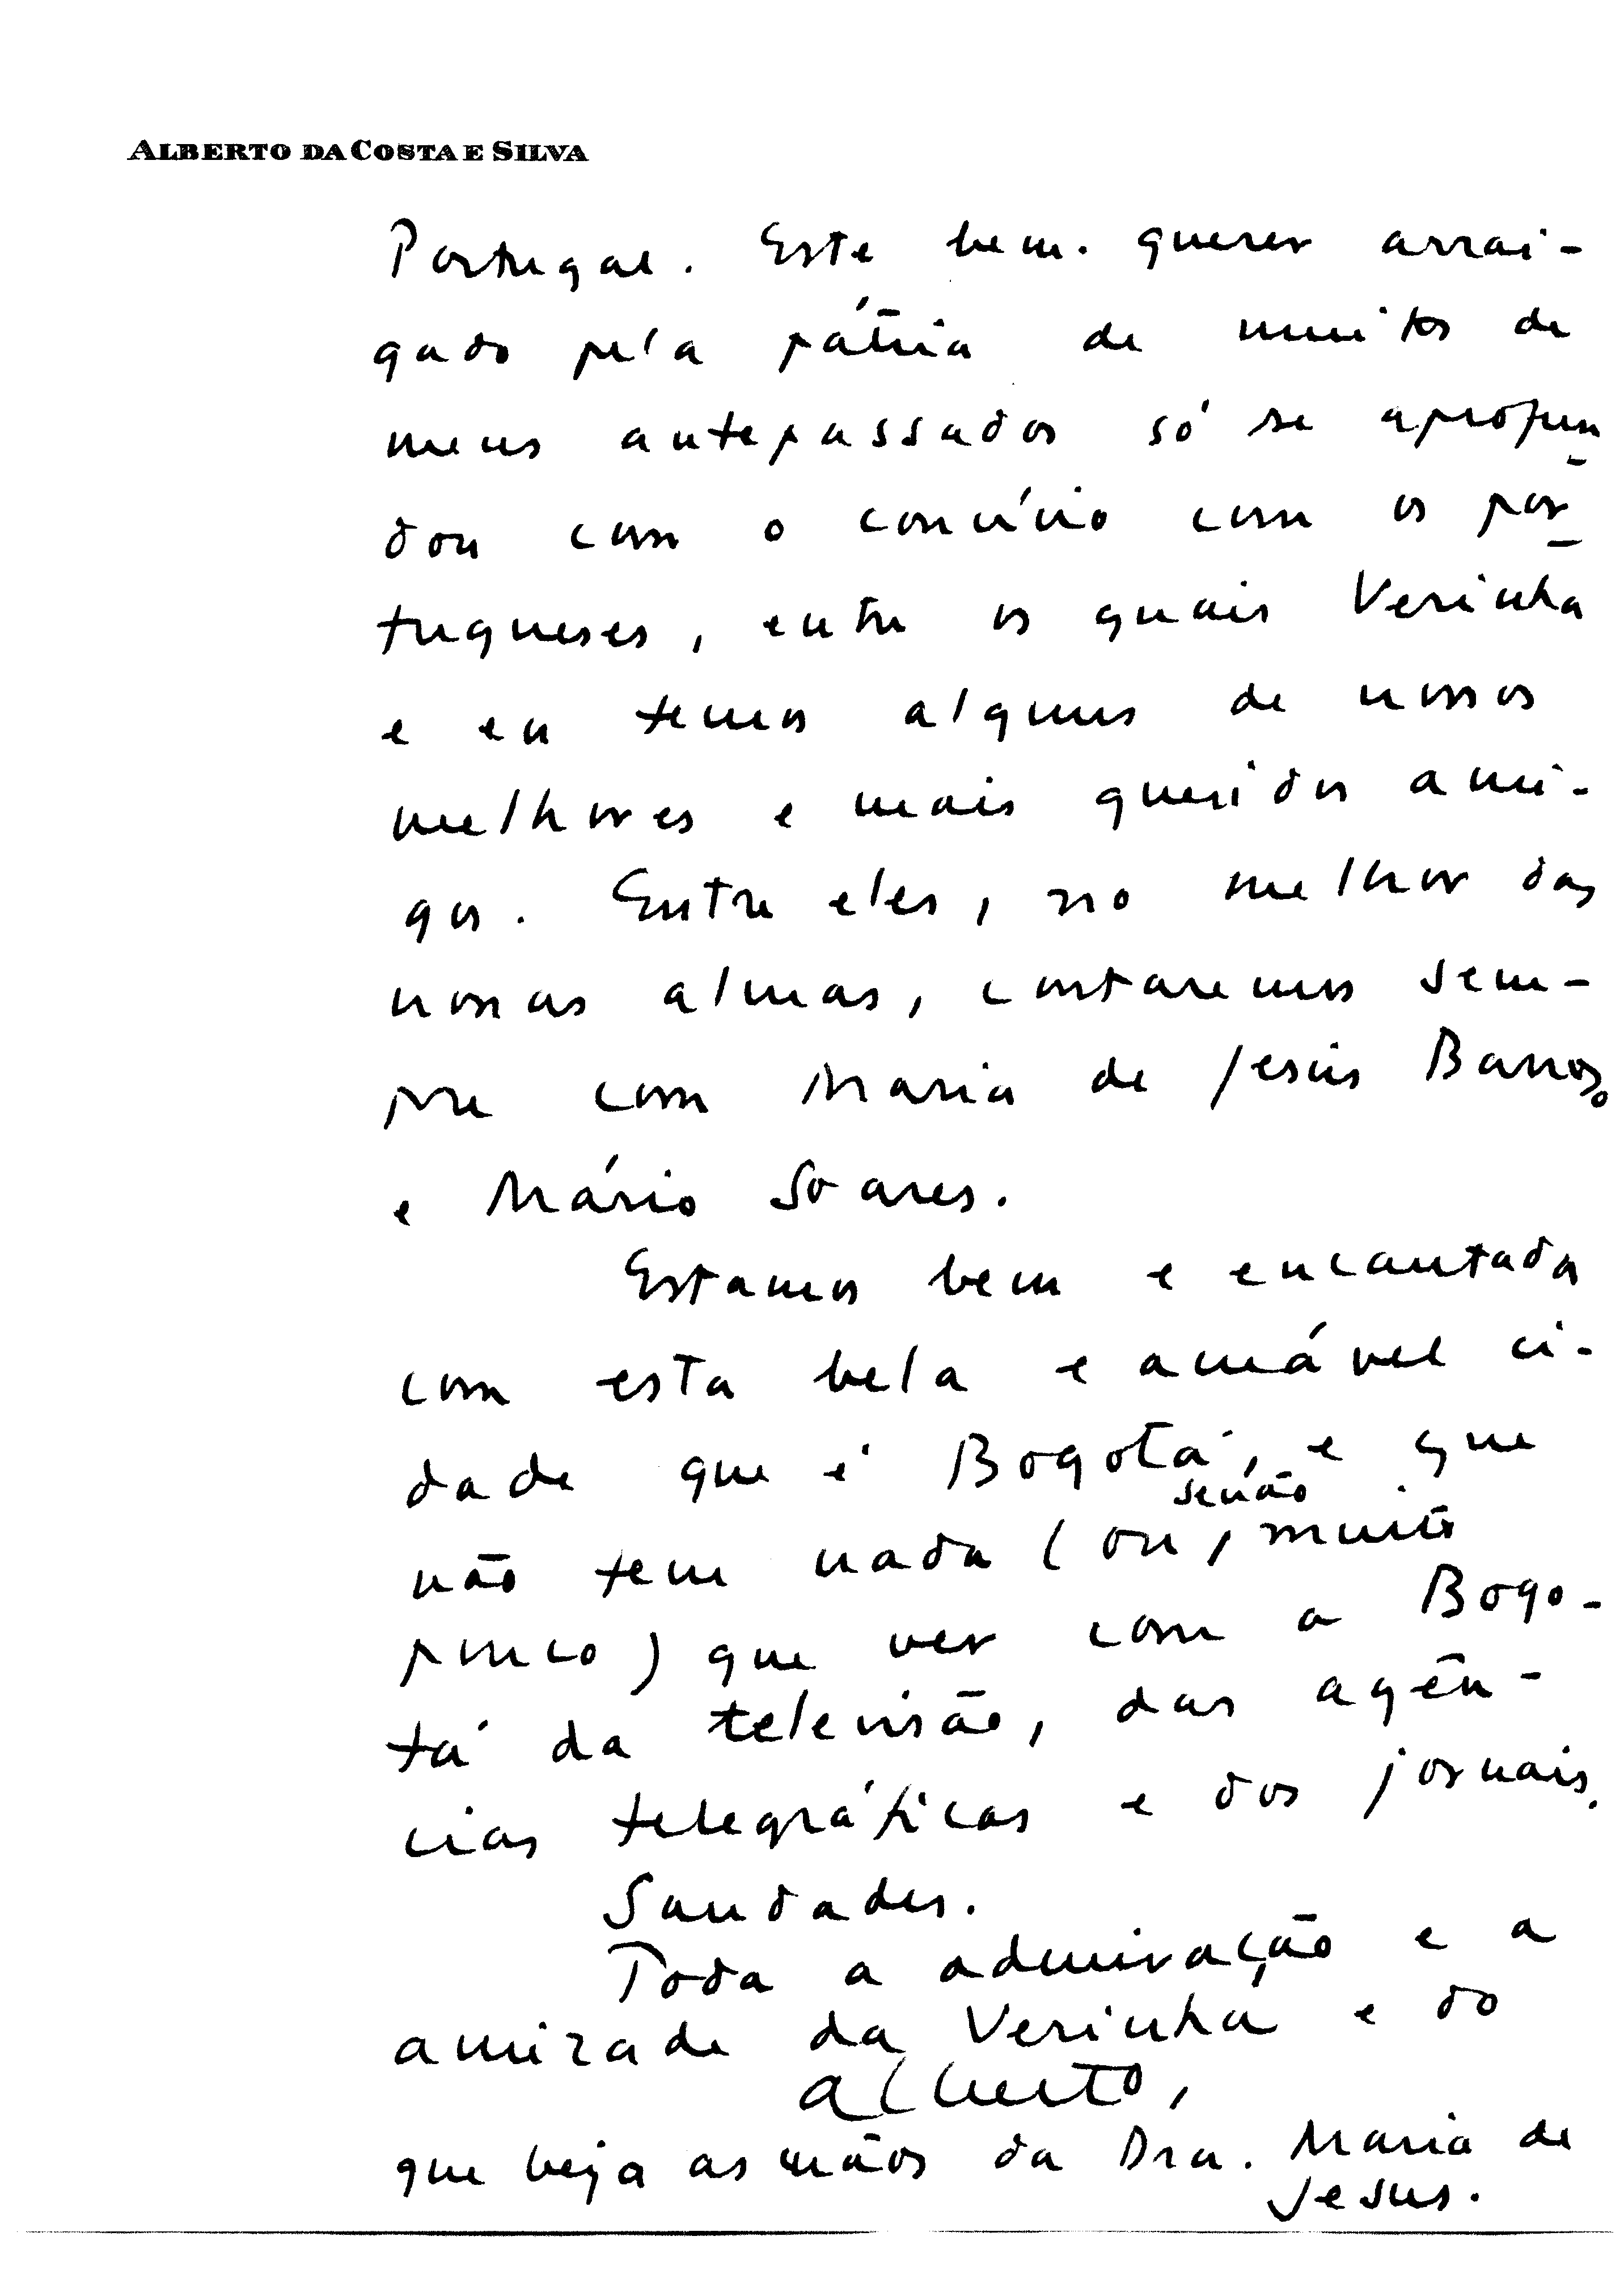 ALBERTO DA COSTA E SILVA
Portugal. Este bem-querer arrai-
gado pela pátria de muitos de
meus antepassados só se aprofun-
dou com o convívio com os por-
tugueses, entre os quais Verinha
e eu temos alguns de nossos
melhores e mais queridos ami-
gos. Entre eles, no melhor das
nossas almas, contaremos sem-
pre com Maria de Jesús Barroso
e Mário Soares.
Estamos bem e encantados
com esta bela e amável ci-
dade que é Bogotá, e que
senão
não tem nada (ou, muito
pouco) que ver com a Bogo-
tá da televisão, das agên-
cias telegráficas e dos jornais.
Saudades.
Toda a admiração e a
amizade da Verinha e do
Alberto,
que beija as mãos da Dra. Maria de
Jesus.